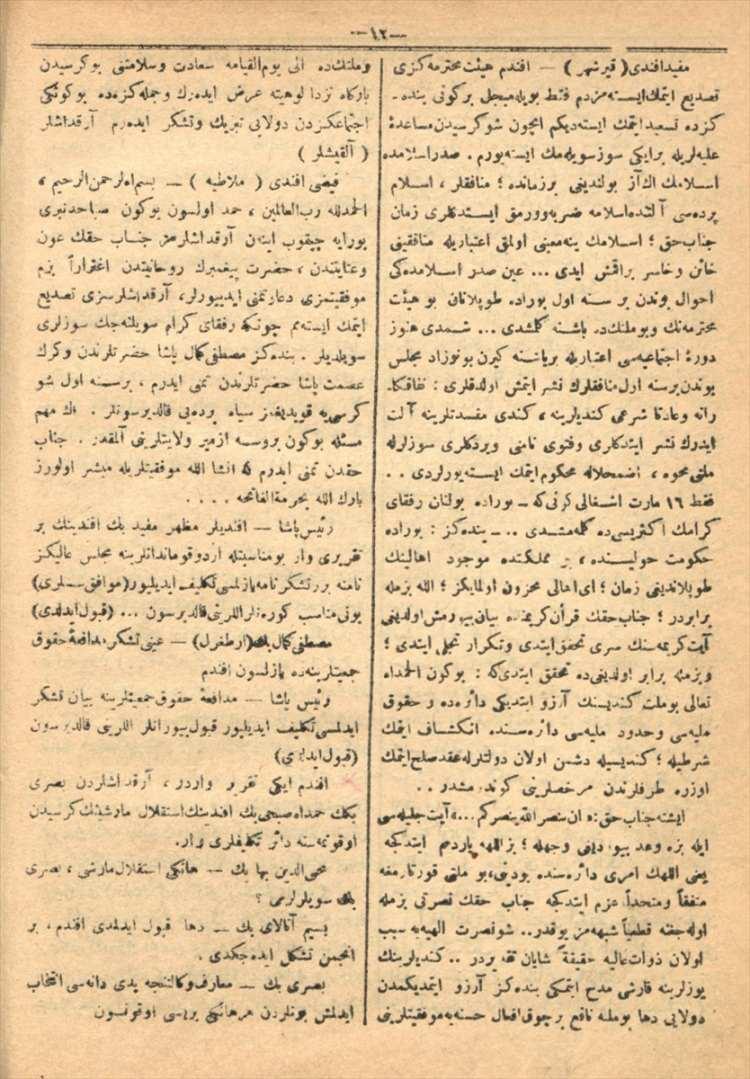 —١٢—
مفيد افندى (قيرشهر) — افندم هيئت محترمه كزى
تصديع ايتمك ايسته مزدم فقط بويله مبجل بركونى بنده ـ
كزده تسعيد ايتمك ايسته ديكم ايچون شو كرسيدن مساعدۀ
عليه لريله برايكى سوز سويله مك ايسته يورم . صدر اسلامده
اسلامك اك آز بولنديغى برزمانده ؛ منافقلر ، اسلام
پرده سى آلتنده اسلامه ضربه وورمق ايستدكلرى زمان
جناب حق ؛ اسلامك ينه معينى اولمق اعتباريله منافقينى
خائن و خاسر براقمش ايدى ... عين صدر اسلامده كى
احوال بوندن بر سنه اول بوراده طوپلانان بو هيئت
محترمه نك و بو ملتك ده باشنه كلمشدى ... شمدى هنوز
دورۀ اجتماعيه سى اعتباريله برياشنه كيرن بو نوزاد مجلس
بوندن برسنه اول منافقلرك نشر ايتمش اولدقلرى ؛ نفاقكا ـ
رانه وعادتا شرعى كنديلرينه ، كندى مفسدتلرينه آلت
ايدرك نشر ايتدكلرى وفتوى نامنى ويردكلرى سوزلرله
ملتى محوه ، اضمحلاله محكوم ايتمك ايسته يورلردى . .
فقط ١٦ مارت اشغالى كونى كه ـ بوراده بولنان رفقاى
كرامك اكثريسى ده كله مشدى .. ـ بنده كز : بوراده
حكومت حوليسنده ، بر مملكتده موجود اهالينك
طوپلانديغى زمان ؛ اى اهالى محزون اولمايكز ؛ الله بزمله
برابردر ؛ جناب حقك قرآن كريمنده بيان بيورمش اولديغى
آيت كريمه سنك سرى تحقق ايتدى وتكرار تجلى ايتدى ؛
وبزمله برابر اولديغى ده تحقق ايتدى كه : بوكون الحمدلله
تعالى بو ملت كنديسنك آرزو ايتديكى دائره ده و حقوق
مليه سى وحدود مليه سى دائره سنده انكشاف ايتمك
شرطيله ؛ كنديسيله دشمن اولان دولتلرله عقد صلح ايتمك
اوزره طرفلرندن مرخصلرينى كوندرمشدر ..
ايشته جناب حق : « ان تنصر الله ينصركم ... » آيت جليله سى
ايله بزه وعد بيورديغى وجهله ؛ بز اللهه ياردم ايتدكجه
يعنى اللهك امرى دائره سنده بو دينى ، بو ملتى قورتارمغه
متفقاً ومتحداً عزم ايتدكجه جناب حقك نصرتى بزمله
اوله جغنه قطعياً شبهه مز يوقدر .. شو نصرت الهيه يه سبب
اولان ذوات عاليه حقيقةً شايان تقديردر .. كنديلرينك
يوزلرينه قارشى مدح ايتمكى بنده كز آرزو ايتمديكمدن
دولايى دها بو ملته نافع برچوق افعال حسنه يه موفقيتلرينى
وملتك ده الى يوم القيامه سعادت وسلامتنى بو كرسيدن
باركاه نزد الوهيته عرض ايدرك وجمله كزه ده بوكونكى
اجتماعكزدن دولايى تبريك وتشكر ايدرم آرقداشلر
( آلقيشلر )
فيضى افندى ( ملاطيه ) — بسم الله الرحمن الرحيم ،
الحمدلله رب العالمين ، حمد اولسون بوكون صباحدنبرى
بورايه چيقوب اينن آرقداشلرمز جناب حقك عون
وعنايتندن ، حضرت پيغمبرك روحانيتندن اغتراراً بزم
موفقيتمزى دعا وتمنى ايدييورلر ، آرقداشلر سزى تصديع
ايتمك ايسته مم چونكه رفقاى كرام سويلنه جك سوزلرى
سويلديلر . بنده كز مصطفى كمال پاشا حضرتلرندن وكرك
عصمت پاشا حضرتلرندن تمنى ايدرم ، برسنه اول شو
كرسى يه قويديغمز سياه پرده يى قالديرسونلر . اك مهم
مسئله بوكون بروسه ازمير ولايتلرينى آلمقدر . جناب
حقدن تمنى ايدرم كه انشا الله موفقيتلريله مبشر اولورز
بارك الله بحرمة الفاتحه . . . .
رئيس پاشا — افنديلر مظهر مفيد بك افندينك بر
تقريرى وار بو مناسبتله اردو قوماندانلرينه مجلس عاليكز
نامنه بر تشكرنامه يازلمسى تكليف ايديليور (موافق سسلرى)
بونى مناسب كورنلر اللرينى قالديرسون ... (قبول ايدلدى)
مصطفى كمال بك (ارطغرل) — عينى تشكر مدافعۀ حقوق
جمعيتلرينه ده يازلسون افندم
رئيس پاشا — مدافعۀ حقوق جمعيتلرينه بيان تشكر
ايدلمسى تكليف ايديليور قبول بيورانلر اللرينى قالديرسون
(قبول ايدلدى)
افندم ايكى تقرير واردر ، آرقداشلردن بصرى
بكك حمدالله صبحى بك افندينك استقلال مارشينك كرسيدن
اوقونمه سنه دائر تكليفلرى وار .
محى الدين بها بك — هانكى استقلال مارشى ، بصرى
بك سويلرلرمى ؟
بسيم آتالاى بك — دها قبول ايدلمدى افندم ، بر
انجمن تشكل ايده جكدى .
بصرى بك — معارف وكالتنجه يدى دانه سى انتخاب
ايدلمش بونلردن هر هانكى بريسى اوقونسون